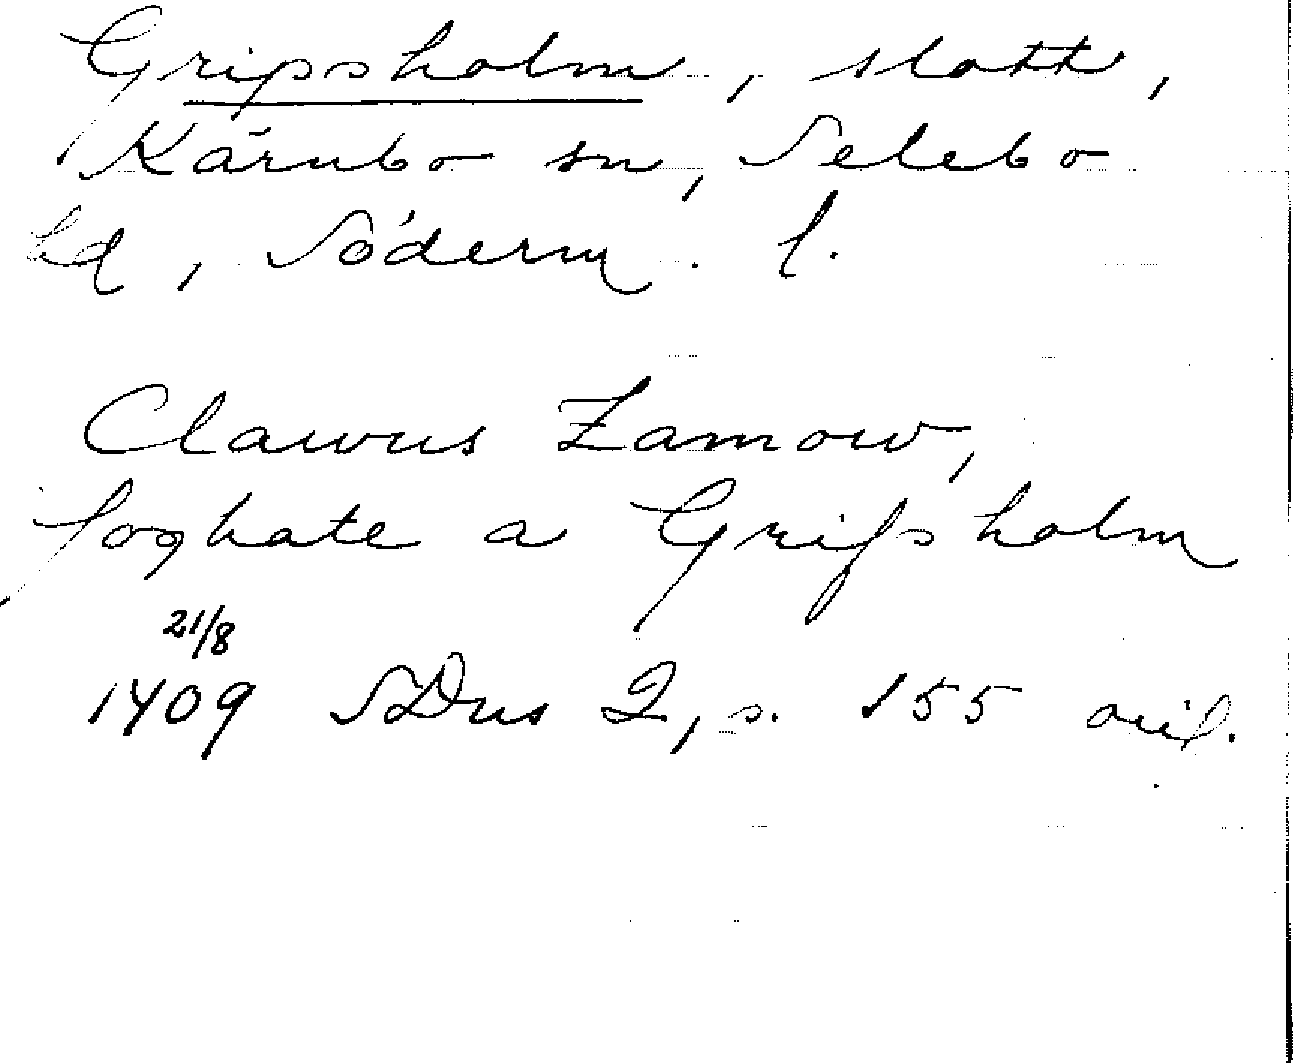 Gripsholm, slott,
Kärnbo sn, Selebo
hd, Söderm. l.
Clawus Zamow,
foghate a Gripsholm
21/8
1409 SDns 2, s. 155 avil.